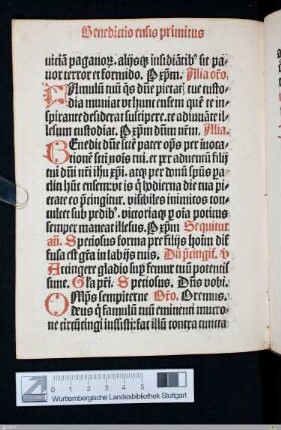 Benedictio ensis primitus
uiciā paganoꝝ. alijsqꝫ insidiātibꝰ sit pa
uor terror et formido. P xp̄m. Alia oř̄o.
Famulū tuū q̄s dn̄e pietatꝭ tue custo
dia muniat vt hunc ensem quē te in
spirante desiderat suscipere. te adiuuāte il
lesum custodiat. P xp̄m dn̄m nr̄m. Alia.
Benedic dn̄e sctē pater om̄ps per inuoca
tionē scti noīs tui. et ꝑ aduentū filij
tui dn̄i nr̄i ihu xp̄i. atqꝫ per donū sp̄us pa
cliti hūc ensem: vt is q̇ hodierna die tua pi
etate eo p̄cingitur. visibiles inimicos con
culcet sub pedibꝰ. victoriaqꝫ ꝑ oīa potitus
semper maneat illesus. P xp̄m Sequitur
añ. Speciosus forma pre filijs hoīm dif
fusa est gr̄a in labijs tuis. Dū p̄cingit̄. v̄
Accingere gladio suꝑ femur tuū potentis
sime. Gl̄a pr̄i. Speciosus. Dn̄s vobi.
Om̄ps sempiterne Oř̄o. Oremus.
Deus q̇ famulū tuū eminenti mucro
ne circūcingi iussisti: fac illū contra cuncta
0 1 2 3 4 5
cm
Württembergische Landesbibliothek Stuttgart